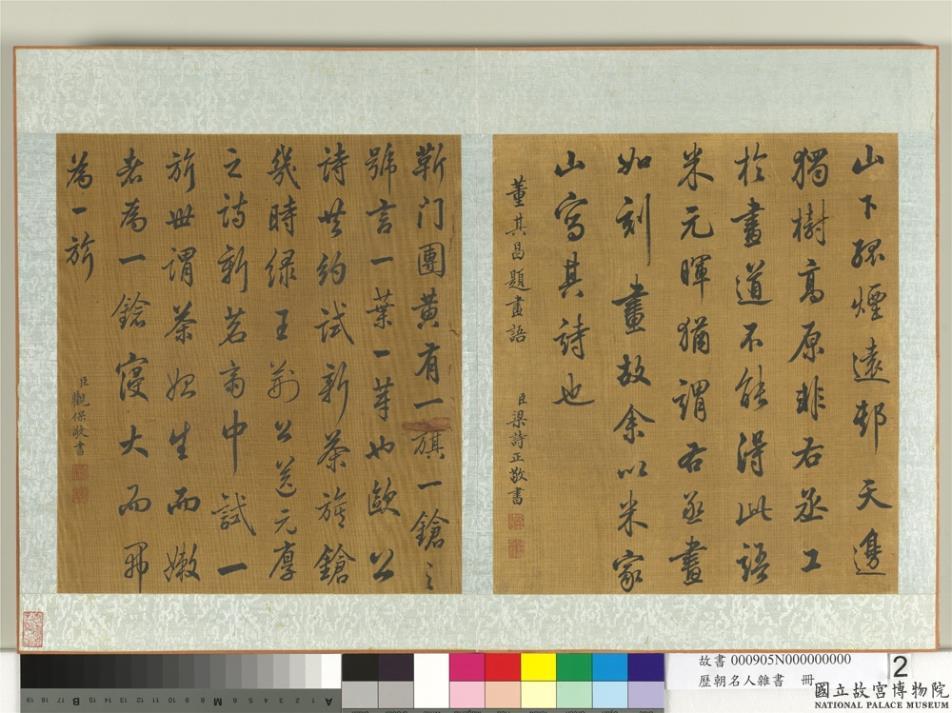 山下孤煙遠邨天邊
獨樹高原非右丞工
於畫道不能得此語
米元暉猶謂右丞畫
如刻畫故余以米家
山寫其詩也
董其昌題畫語
臣梁詩正敬書
蘄門團黃有一旗一鎗之
號言一葉一芽也歐公
詩共約試新茶旗鎗
幾時綠王荊公送元厚
之詩新茗齋中試一
旂世謂茶始生而嫩
者為一鎗寖大而開
為一旂
臣觀保敬書
故書 000905N000000000
歷朝名人雜書 冊
2
國立故宮博物院
NATIONAL PALACE MUSEUM